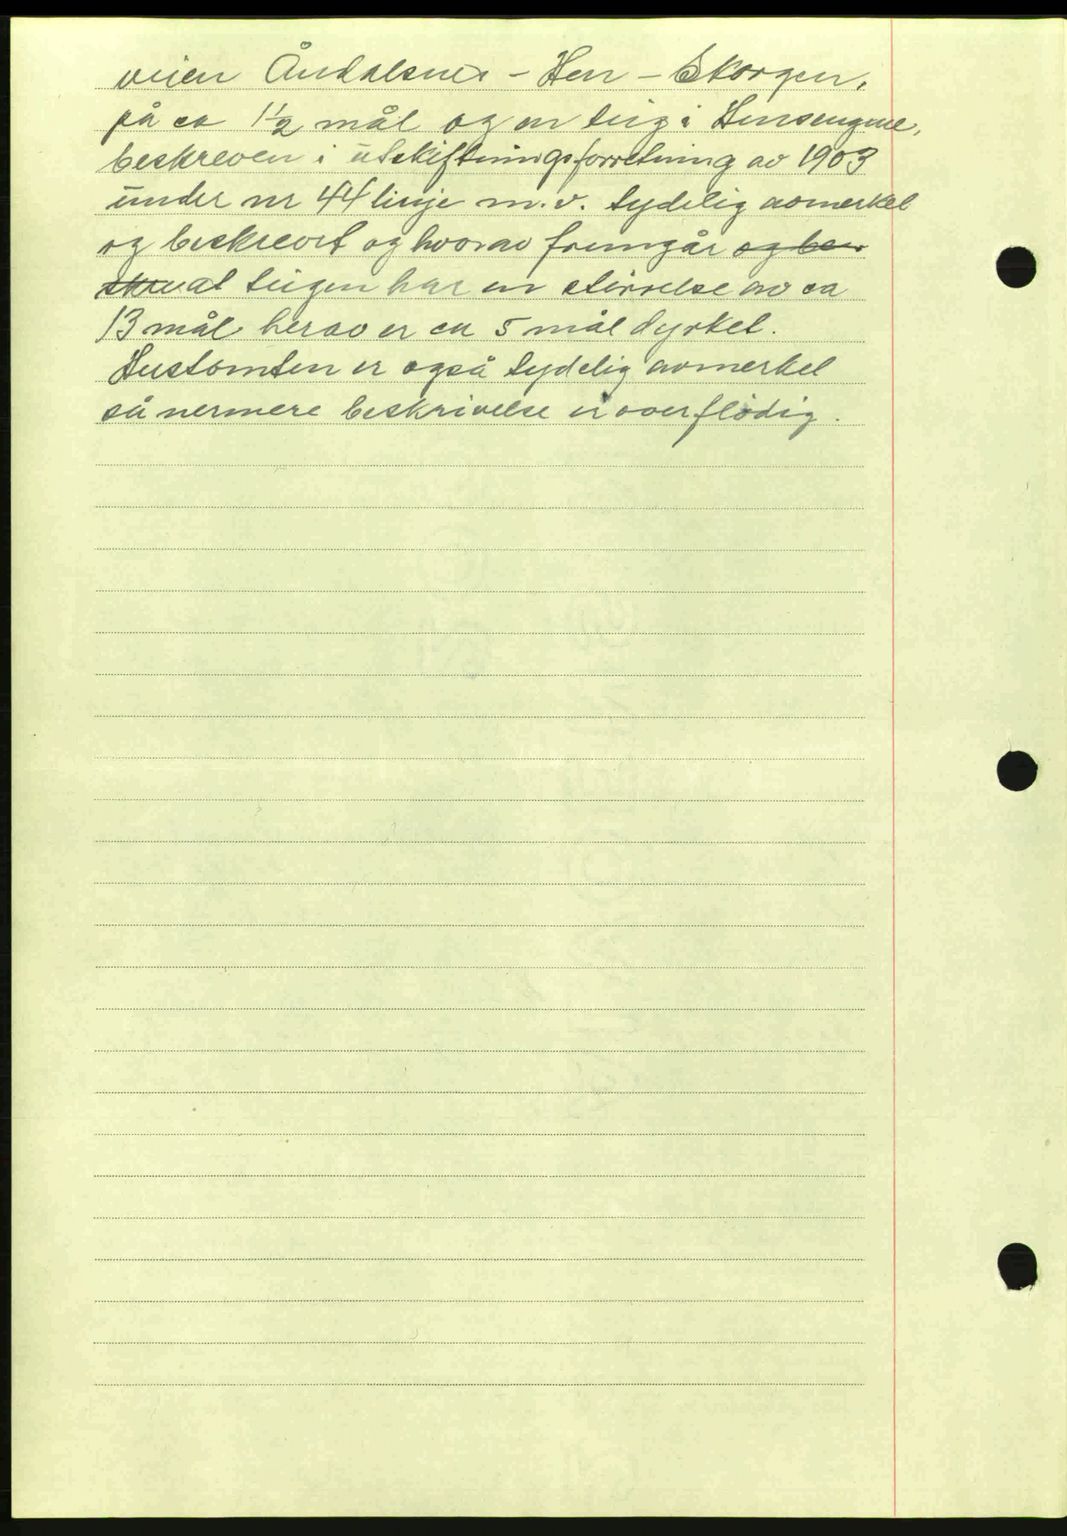 veien Åndalsnes - Hen - Skorgen,
på ca 1½ mål og en teig i Hensengene,
beskreven i utskiftningsforretning av 1903
under nr 44 linje m.v. tydelig avmerket
og beskrevet og hvorav fremgår og be-
skre at teigen har en størrelse av ca
13 mål herav er ca 5 mål dyrket.
Hustomten er også tydelig avmerket
så nermere beskrivelse er overflødig.